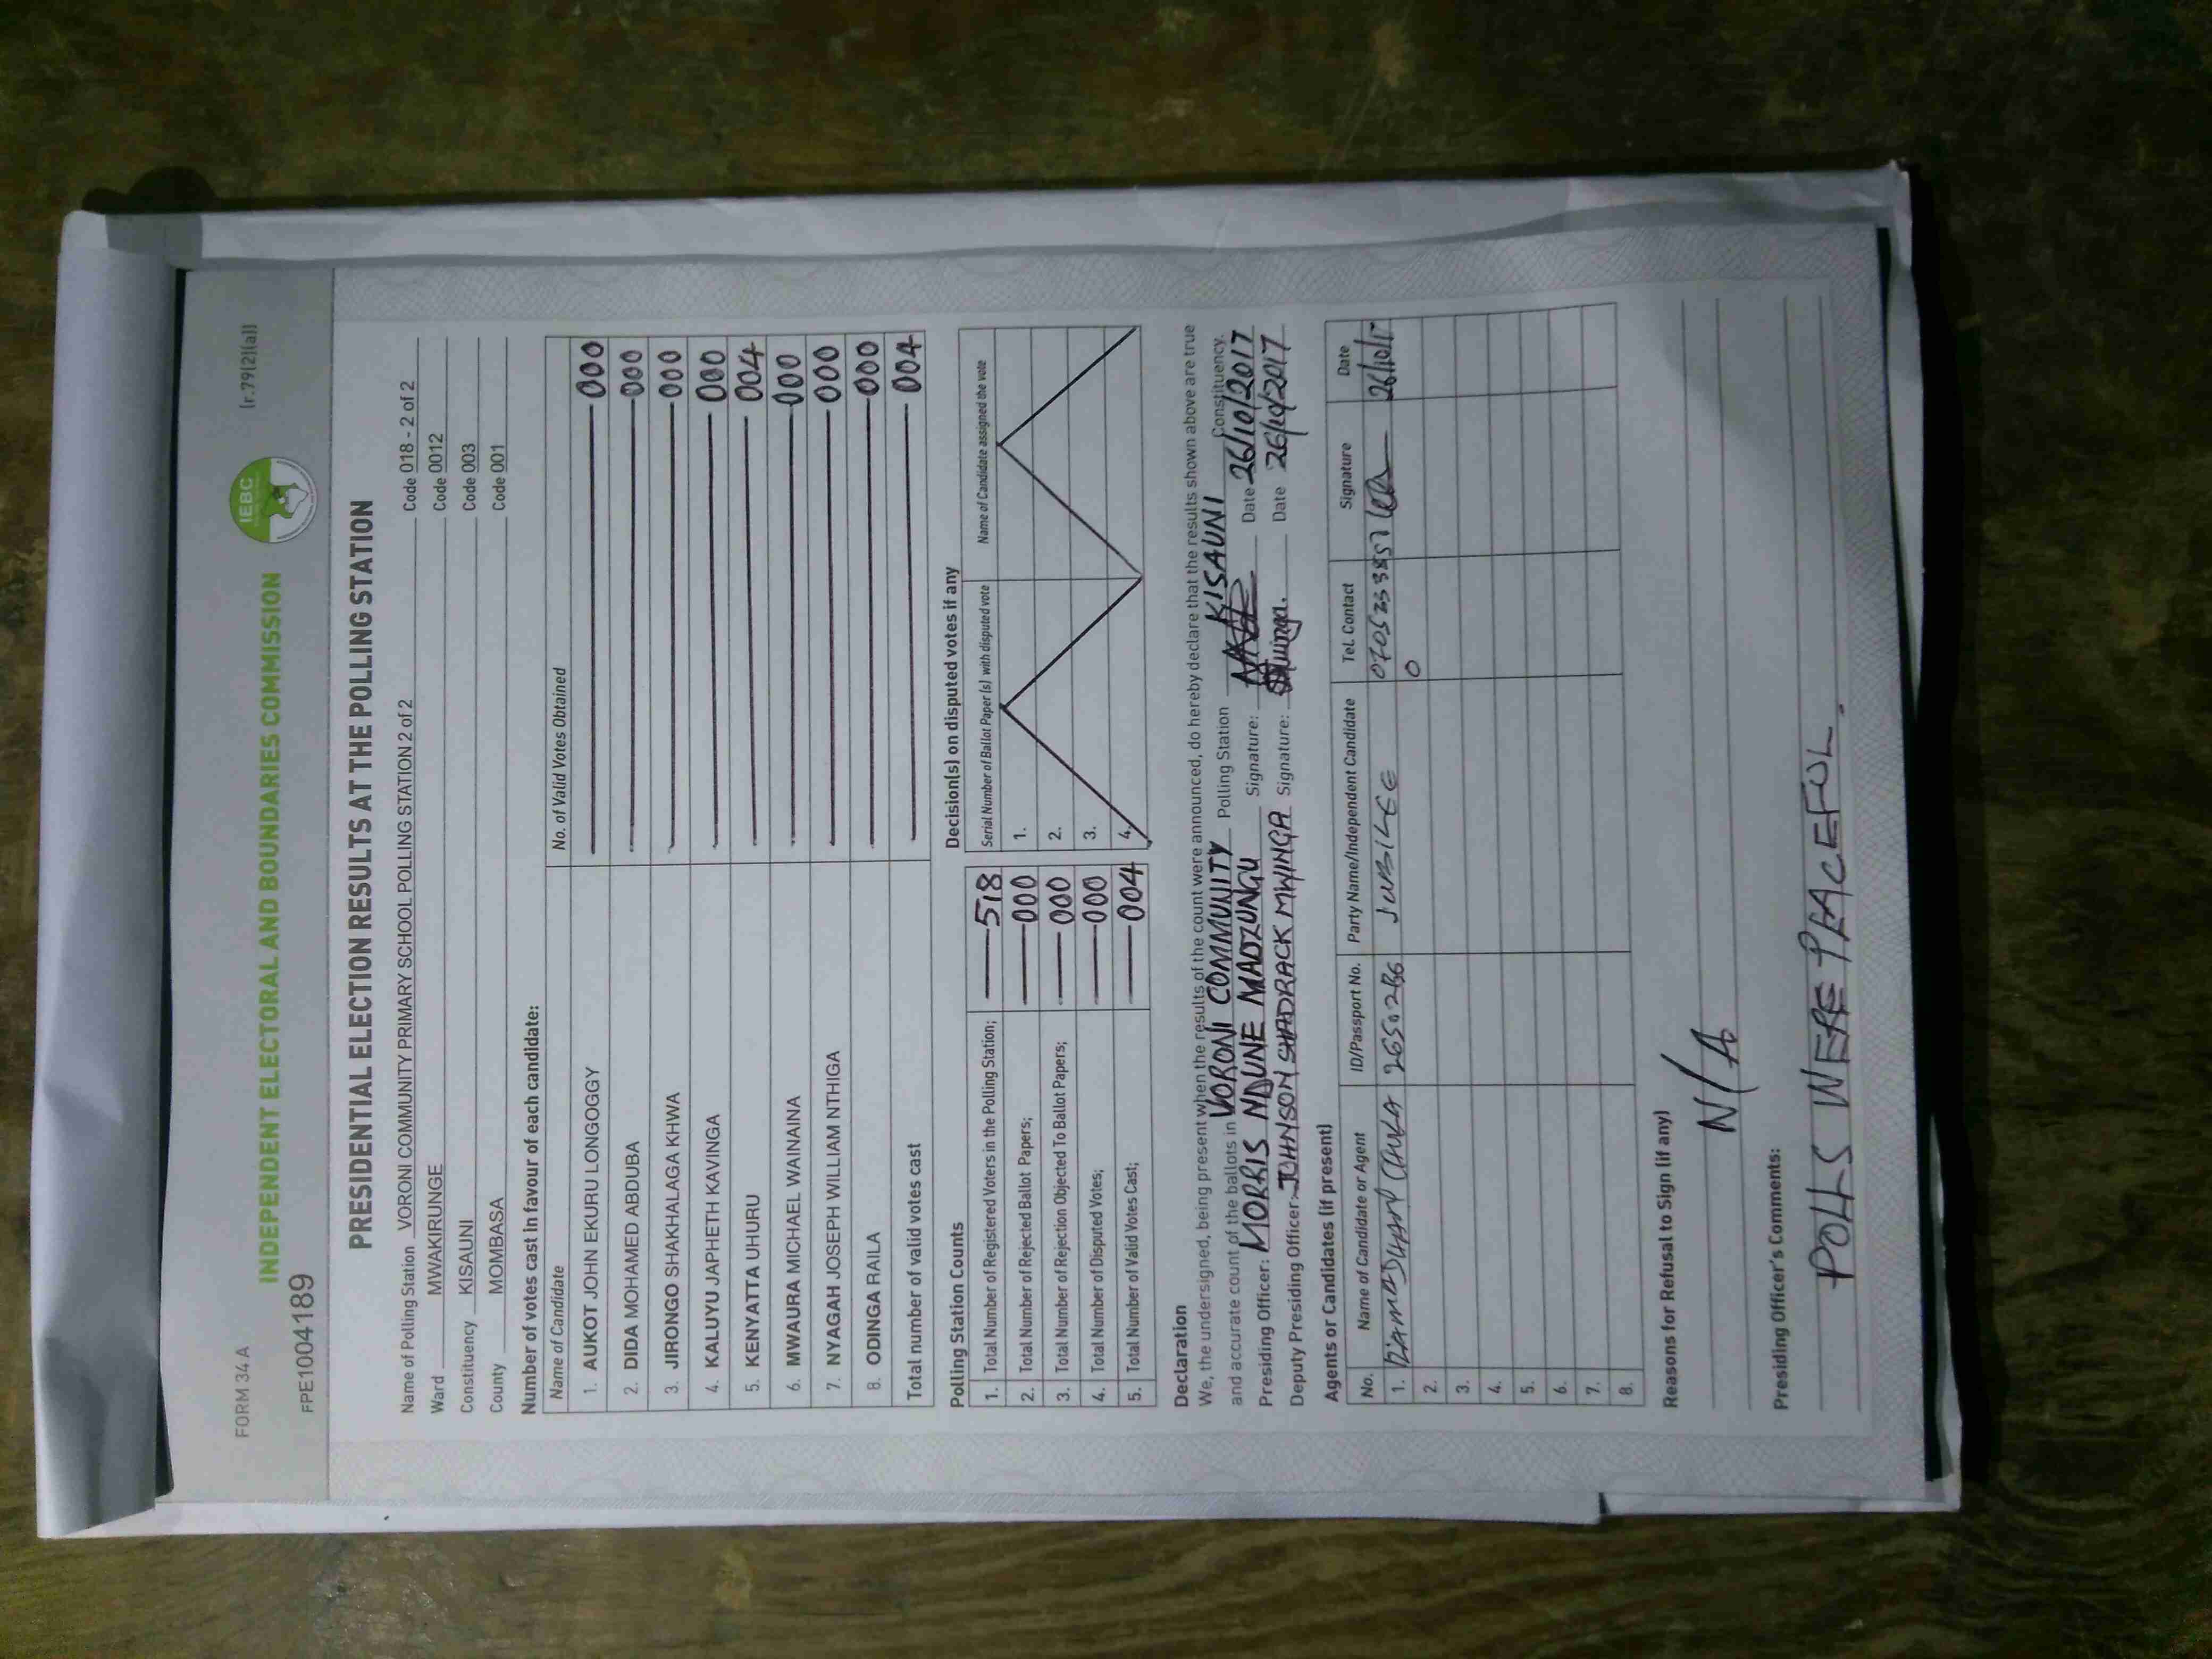 FORM 34 A
(r.79(2)(a))
INDEPENDENT ELECTORAL AND BOUNDARIES COMMISSION
IEBC
FPE1004189
PRESIDENTIAL ELECTION RESULTS AT THE POLLING STATION
Name of Polling Station VORONI COMMUNITY PRIMARY SCHOOL POLLING STATION 2 of 2 Code 018 - 2 of 2
Ward MWAKIRUNGE Code 0012
Constituency KISAUNI Code 003
County MOMBASA Code 001
Number of votes cast in favour of each candidate:
Name of Candidate No. of Valid Votes Obtained
1. AUKOT JOHN EKURU LONGOGGY 000
2. DIDA MOHAMED ABDUBA 000
3. JIRONGO SHAKHALAGA KHWA 000
4. KALUYU JAPHETH KAVINGA 000
5. KENYATTA UHURU 004
6. MWAURA MICHAEL WAINAINA 000
7. NYAGAH JOSEPH WILLIAM NTHIGA 000
8. ODINGA RAILA 000
Total number of valid votes cast 004
Polling Station Counts
1. Total Number of Registered Voters in the Polling Station; 518
2. Total Number of Rejected Ballot Papers; 000
3. Total Number of Rejection Objected To Ballot Papers; 000
4. Total Number of Disputed Votes; 000
5. Total Number of Valid Votes Cast; 004
Decision(s) on disputed votes if any
Serial Number of Ballot Paper (s) with disputed vote Name of Candidate assigned the vote
1.
2.
3.
4.
Declaration
We, the undersigned, being present when the results of the count were announced, do hereby declare that the results shown above are true
and accurate count of the ballots in VORONI COMMUNITY Polling Station KISAUNI Constituency.
Presiding Officer: MORRIS NDUNE MADZUNGU Signature: Date 26/10/2017
Deputy Presiding Officer: JOHNSON SHADRACK MWINGA Signature: Mwinga. Date 26/10/2017
Agents or Candidates (if present)
No. Name of Candidate or Agent ID/Passport No. Party Name/Independent Candidate Tel. Contact Signature Date
1. JUBILEE 26/10/17
2.
3.
4.
5.
6.
7.
8.
Reasons for Refusal to Sign (if any)
N/A
Presiding Officer's Comments:
POLLS WERE PEACEFUL.